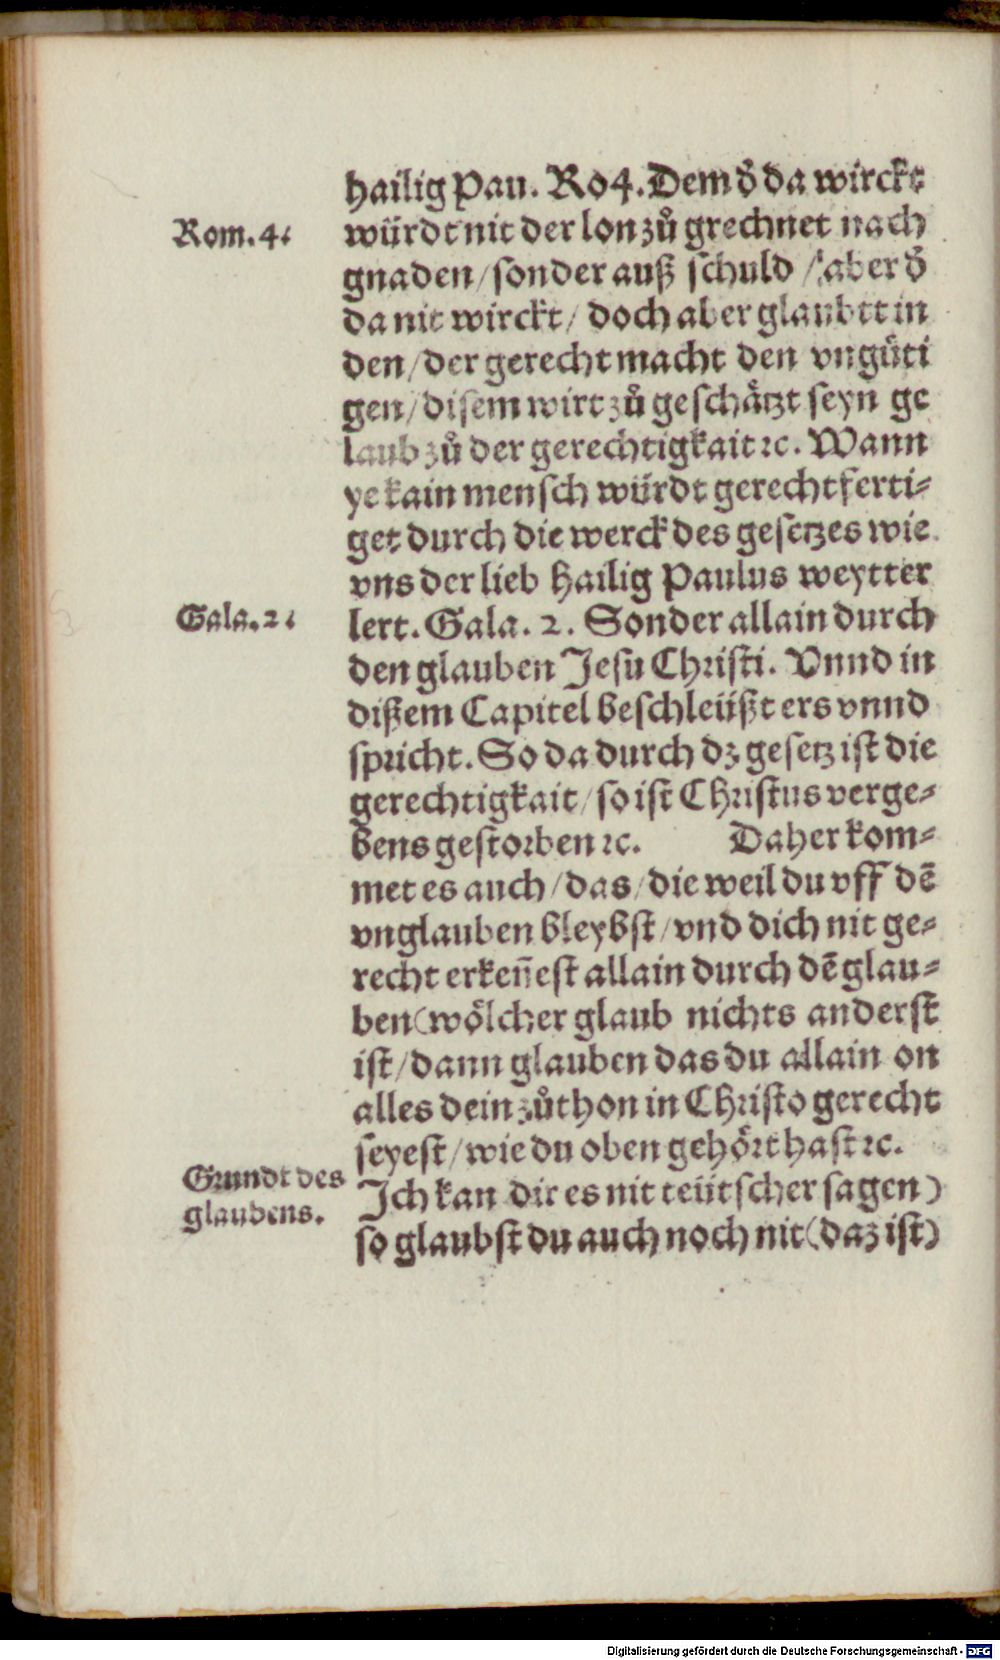 hailig Pau. Ro4. Dem ď da wirckt
Rom. 4.
würdt nit der lon zů grechnet nach
gnaden / sonder auß schuld / aber ď
da nit wirckt / doch aber glaubtt in
den / der gerecht macht den vngüti
gen / disem wirt zů geschätzt seyn ge
laub zů der gerechtigkait ꝛc. Wann
ye kain mensch würdt gerechtferti-
get durch die werck des gesetzes wie
vns der lieb hailig Paulus weytter
Gala. 2.
lert. Gala. 2. Sonder allain durch
den glauben Jesu Christi. Vnnd in
dißem Capitel beschleüßt ers vnnd
spricht. So da durch dz gesetz ist die
gerechtigkait / so ist Christus verge-
bens gestorben ꝛc. Daher kom-
met es auch / das / die weil du vff dē
vnglauben bleybst / vnd dich nit ge-
recht erkeñest allain durch dē glau-
ben (wölcher glaub nichts anderst
ist / dann glauben das du allain on
alles dein zůthon in Christo gerecht
seyest / wie du oben gehört hast ꝛc.
Grundt des
glaubens.
Ich kan dir es nit teütscher sagen)
so glaubst du auch noch nit (daz ist)
Digitalisierung gefördert durch die Deutsche Forschungsgemeinschaft - DFG